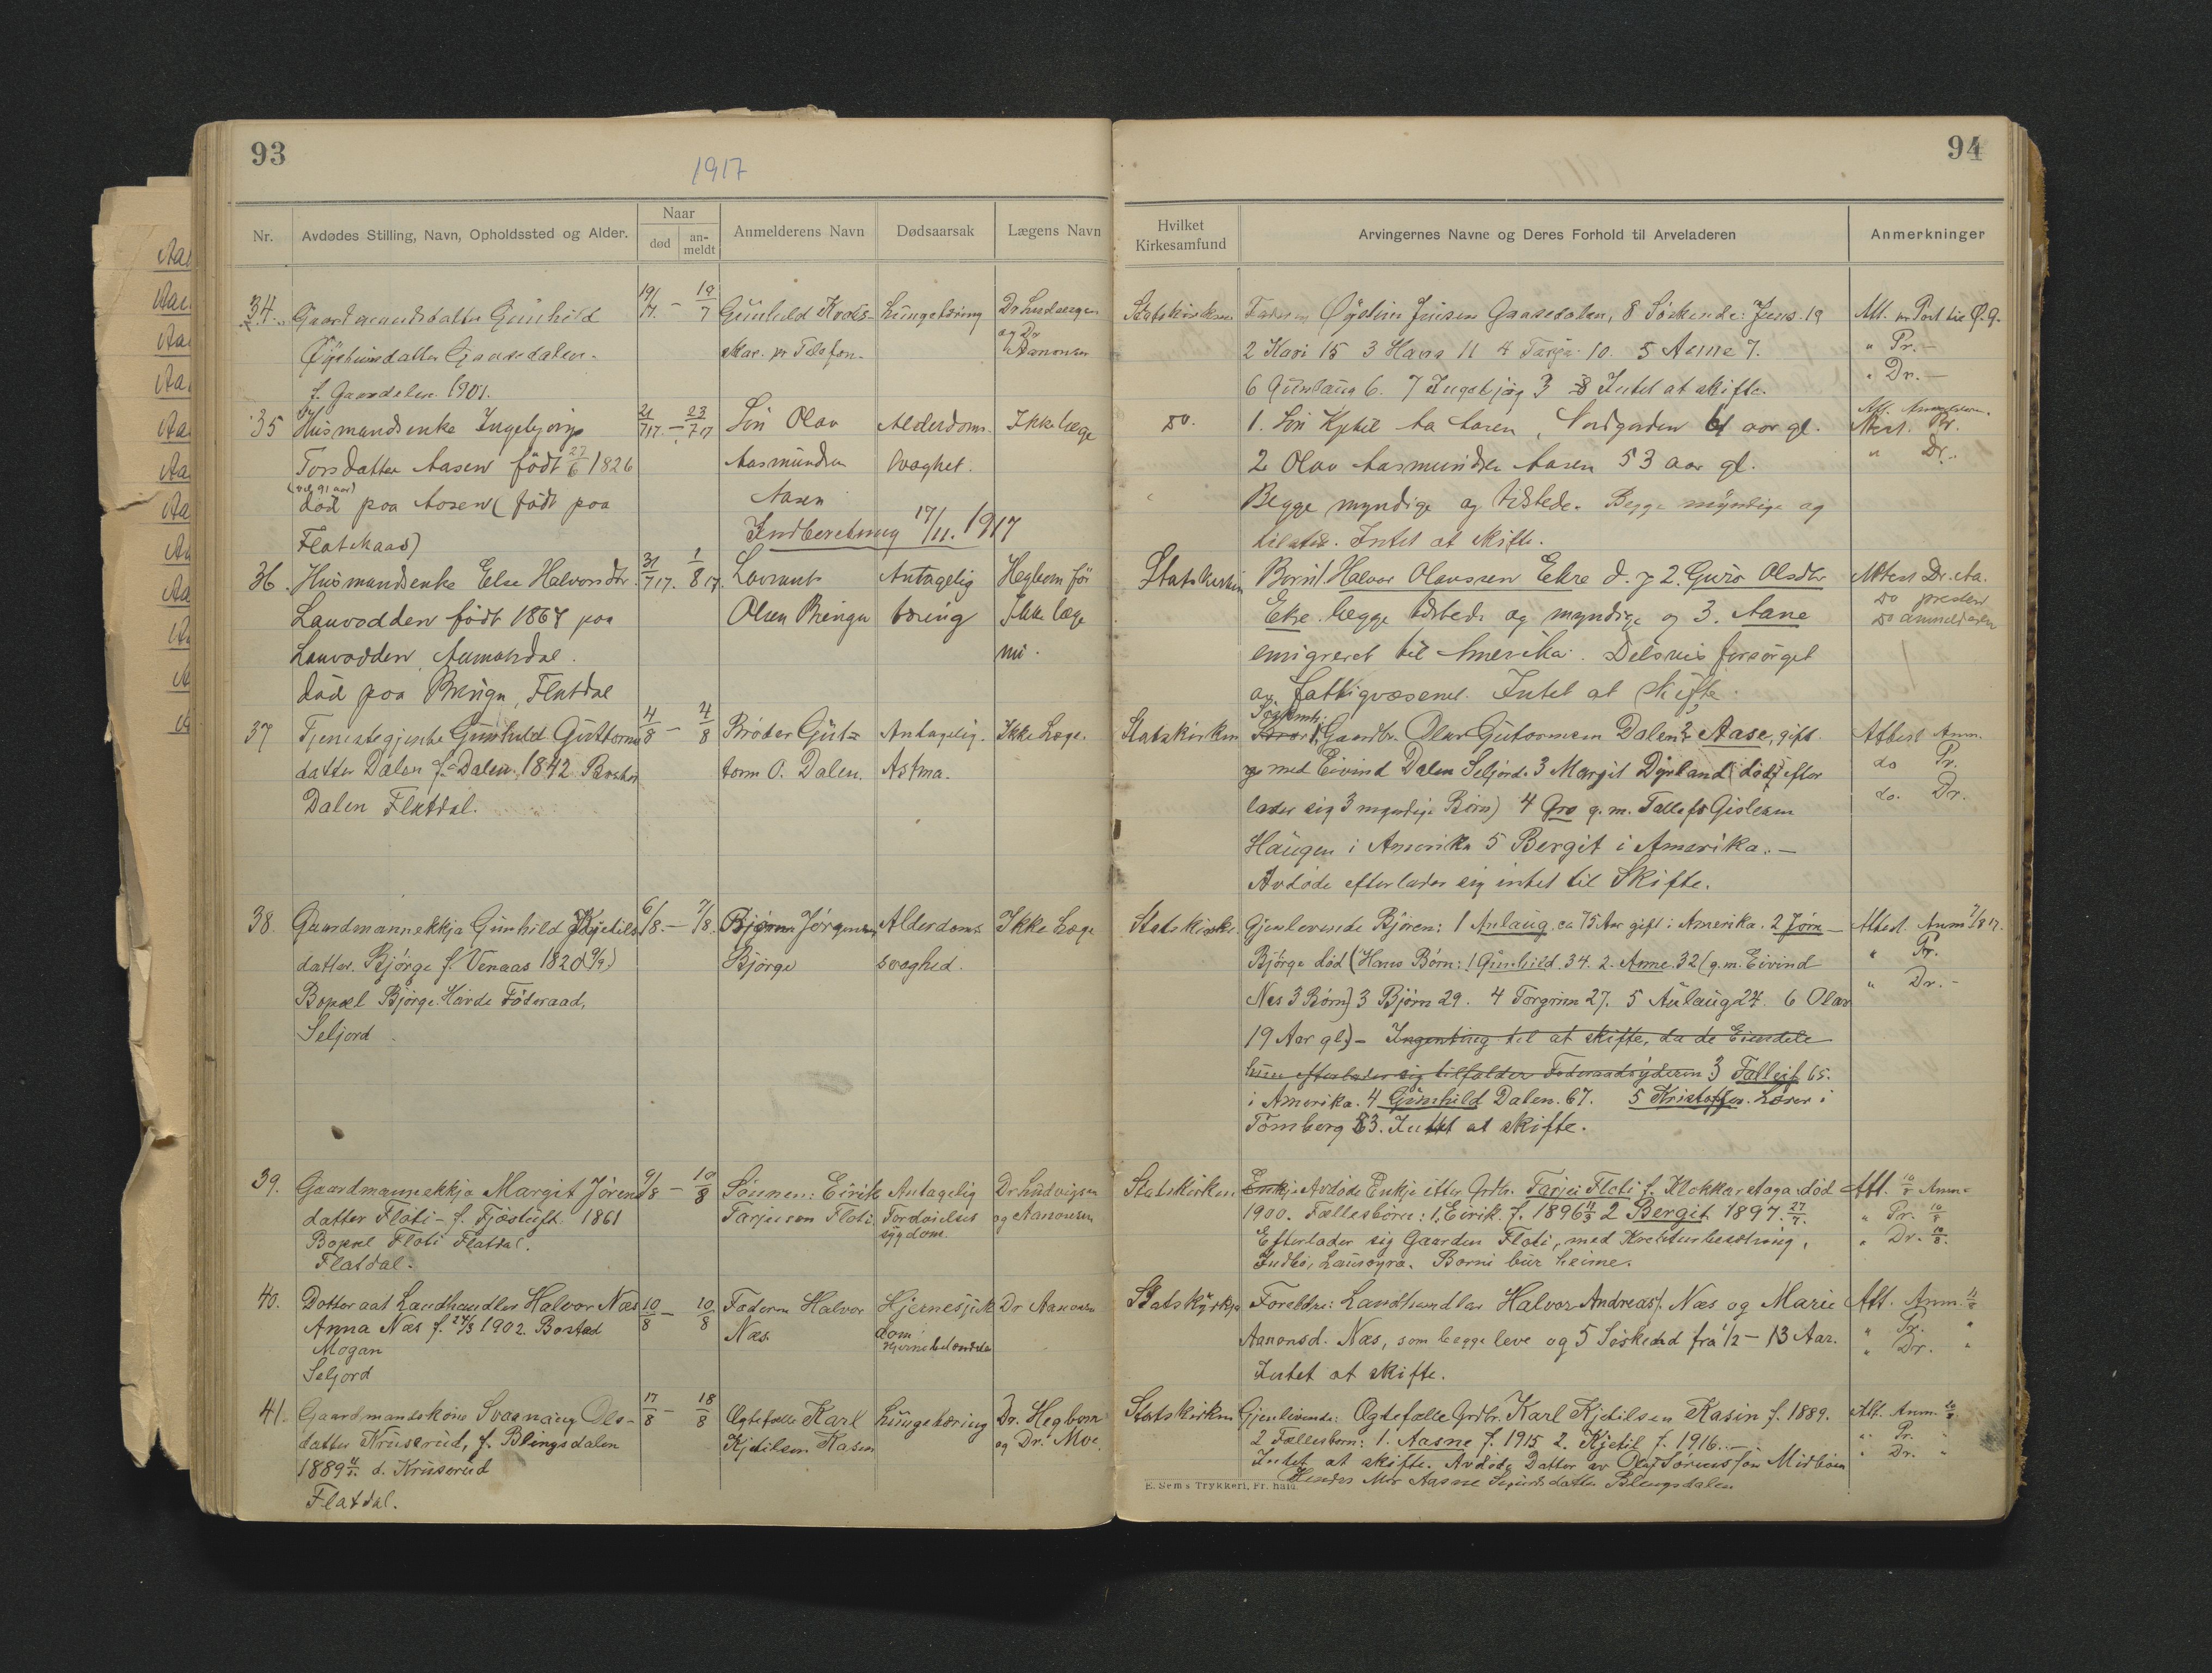 93
1917
Nr.
Avdødes Stilling, Navn, Opholdssted og Alder.
Naar
død
an-
meldt
Anmelderens Navn
Dødsaarsak
Lægens Navn
34.
Gaardmandsdatter Gunhild
Øysteinsdatter Gaasedalen.
f. Gaasdalen 1901.
19/7. — 19/7
Gunhild Kvals-
mar. pr Telefon.
Lungetæring
Dr Ludvigsen
og Dr
Aanonsen
35
Husmandsenke Ingebjørg
Torsdatter Aasen født 27/6 1826
(vel 91 aar)
død paa Aasen (født paa
Flatskaas)
21/7 17. — 23/7 17
Søn Olav
Aasmundsen
Aasen
Alderdoms-
svaghet.
Ikke læge
Indberetning 17/11. 1917
36.
Husmandsenke Else Halvorsdtr.
Lauvodden født 1867 paa
Lauvodden, Aamotsdal.
død paa Bringa, Flatdal
31/7 17. 1/8 17.
Lavrants
Olsen Bringa
Antagelig
tæring
Hegbom før
Ikke læge
nu.
37
Tjenestegjente Gunhild Guttorms
datter Dalen f. Dalen 1842. Bosted
Dalen Flatdal.
4/8 — 4/8
Broder Gut-
torm O. Dalen.
Antagelig.
Astma.
Ikke Læge.
38.
Gaardmannekkja Gunhild Kjetils
datter. Bjørge f. Venaas 1820 (9/9)
Bopæl Bjørge. Havde Føderaad,
Seljord
6/8. — 7/8.
Bjørn Jørgensen
Bjørge
Alderdoms
svaghed.
Ikke Læge
39.
Gaardmannekkja Margit Jørens
datter Floti - f. Fjøstuft 1861
Bopæl Floti Flatdal.
Flatdal.
9/8 — 10/8
Sønnen: Eirik
Tarjeisen Floti.
Antagelig
Fordøielses
sygdom.
Dr Ludvigsen
og Aanonsen
40.
Dotter aat Landhandler Halvor Næs
Anna Næs f. 24/3 1902. Bosted
Mogan
Seljord
10/8 — 10/8
Faderen Halvor
Næs.
Hjernesjuk
dom
Dr Aanonsen
41.
Gaardmandskone Svanaug Ols-
datter Kruserud, f. Blengsdalen
1889 d. Kruserud
Flatdal.
17/8 — 18/8
Ægtefælle Karl
Kjetilsen Rasen
Lungetæring
Dr. Hegbom
og Dr. Moe.
94
Hvilket
Kirkesamfund
Arvingernes Navne og Deres Forhold til Arveladeren
Anmerkninger
Statskirken
Faderen Øystein Jensen Gaasedalen, 8 Søskende: Jens 19
2 Kari 15 3 Hans 11 4 Tarjei 10. 5 Anne 7.
6 Gunlaug 6. 7 Ingebjørg 3 Intet at skifte.
Att. pr Post til Ø. G.
" Pr. —
" Dr. —
Do.
1. Søn Kjetil Aa Aasen, Nordgarden 61 aar gl.
2 Olav Aasmundsen Aasen 53 aar gl.
Begge myndige og tilstede. Begge myndige og
tilstede. Intet at skifte.
Att. Anmelderen.
Attest. Pr.
" Dr.
Statskirken
Børn: 1. Halvor Olavssen Eekre d. 2. Guro Olsdtr
Ekre begge tilstede og myndige og 3. Aane
emigreret til Amerika. Delsvis forsørget
av fattigvæsenet. Intet at skifte.
Attest Dr. Aa.
Do presten
Do anmelderen
Statskirken
Søskende:
1 Gaardbr. Olav Gutormsen Dalen 2 Aase, gift
med Eivind Dalen Seljord. 3 Margit Dyrland (død, efter
lader sig 3 myndige Børn) 4 Gro g. m. Tallef Gisleson
Haugen i Amerika 5 Bergit i Amerika. —
Avdøde efterlader sig intet til Skifte.
Attest Anm.
do Pr.
do. Dr.
Statskirke
Gjenlevende Bjøren: 1 Anlaug ca 75 Aar gift i Amerika. 2 Jørn —
Bjørge død (Hans Børn: 1 Gunhild. 34. 2. Anne. 32 (g. m. Eivind
Nes 3 Børn) 3 Bjørn 29. 4 Torgrim 27. 5 Aulaug 24. 6 Olav
19 Aar gl.) — Ingenting til at skifte, da de Eiendele
hun efterlader sig tilfalder Føderaadsyderen 3 Falleif 65.
i Amerika. 4 Gunhild Dalen. 67. 5 Kristoffer. Lærer i
Tømberg 53. Intet at skifte.
Attest. Anm 7/8 17.
" Pr.
" Dr. —
Statskirken
Avdøde Enkje etter Grdbr. Tarjei Floti f. Klokkarstaga død
1900. Fællesbørn: 1. Eirik f. 1896 2 Bergit 1897. 27/7.
Efterlader sig Gaarden Floti, med Kreaturbesætning,
Indbo, Lausøyra. Borni bur heime.
Att. 10/8 Anm.
" Pr. 10/8
" Dr. 10/8.
Statskyrkja
Foreldre: Landhandlar Halvor Andreas/. Næs og Marie
Aanonsd. Næs, som begge leve og 5 Søskend fra 1/2 — 13 Aar.
Intet at skifte.
Att. Anm. 11/8
" Pr. "
" Dr. "
Statskirken
Gjenlevende: Ægtefælle Grdbr. Karl Kjetilsen Rasin f. 1889.
2 Fællesborn: 1. Aasne f. 1915 2. Kjetil f. 1916. —
Intet at skifte. Avdøde Datter av Olaf Midbøen
Hendes Mor Aasne Sigurdsdatter Blengsdalen
Att. Anm.
" Pr. "
" Dr. "
E. Sem's Trykkeri, Fr. hald.